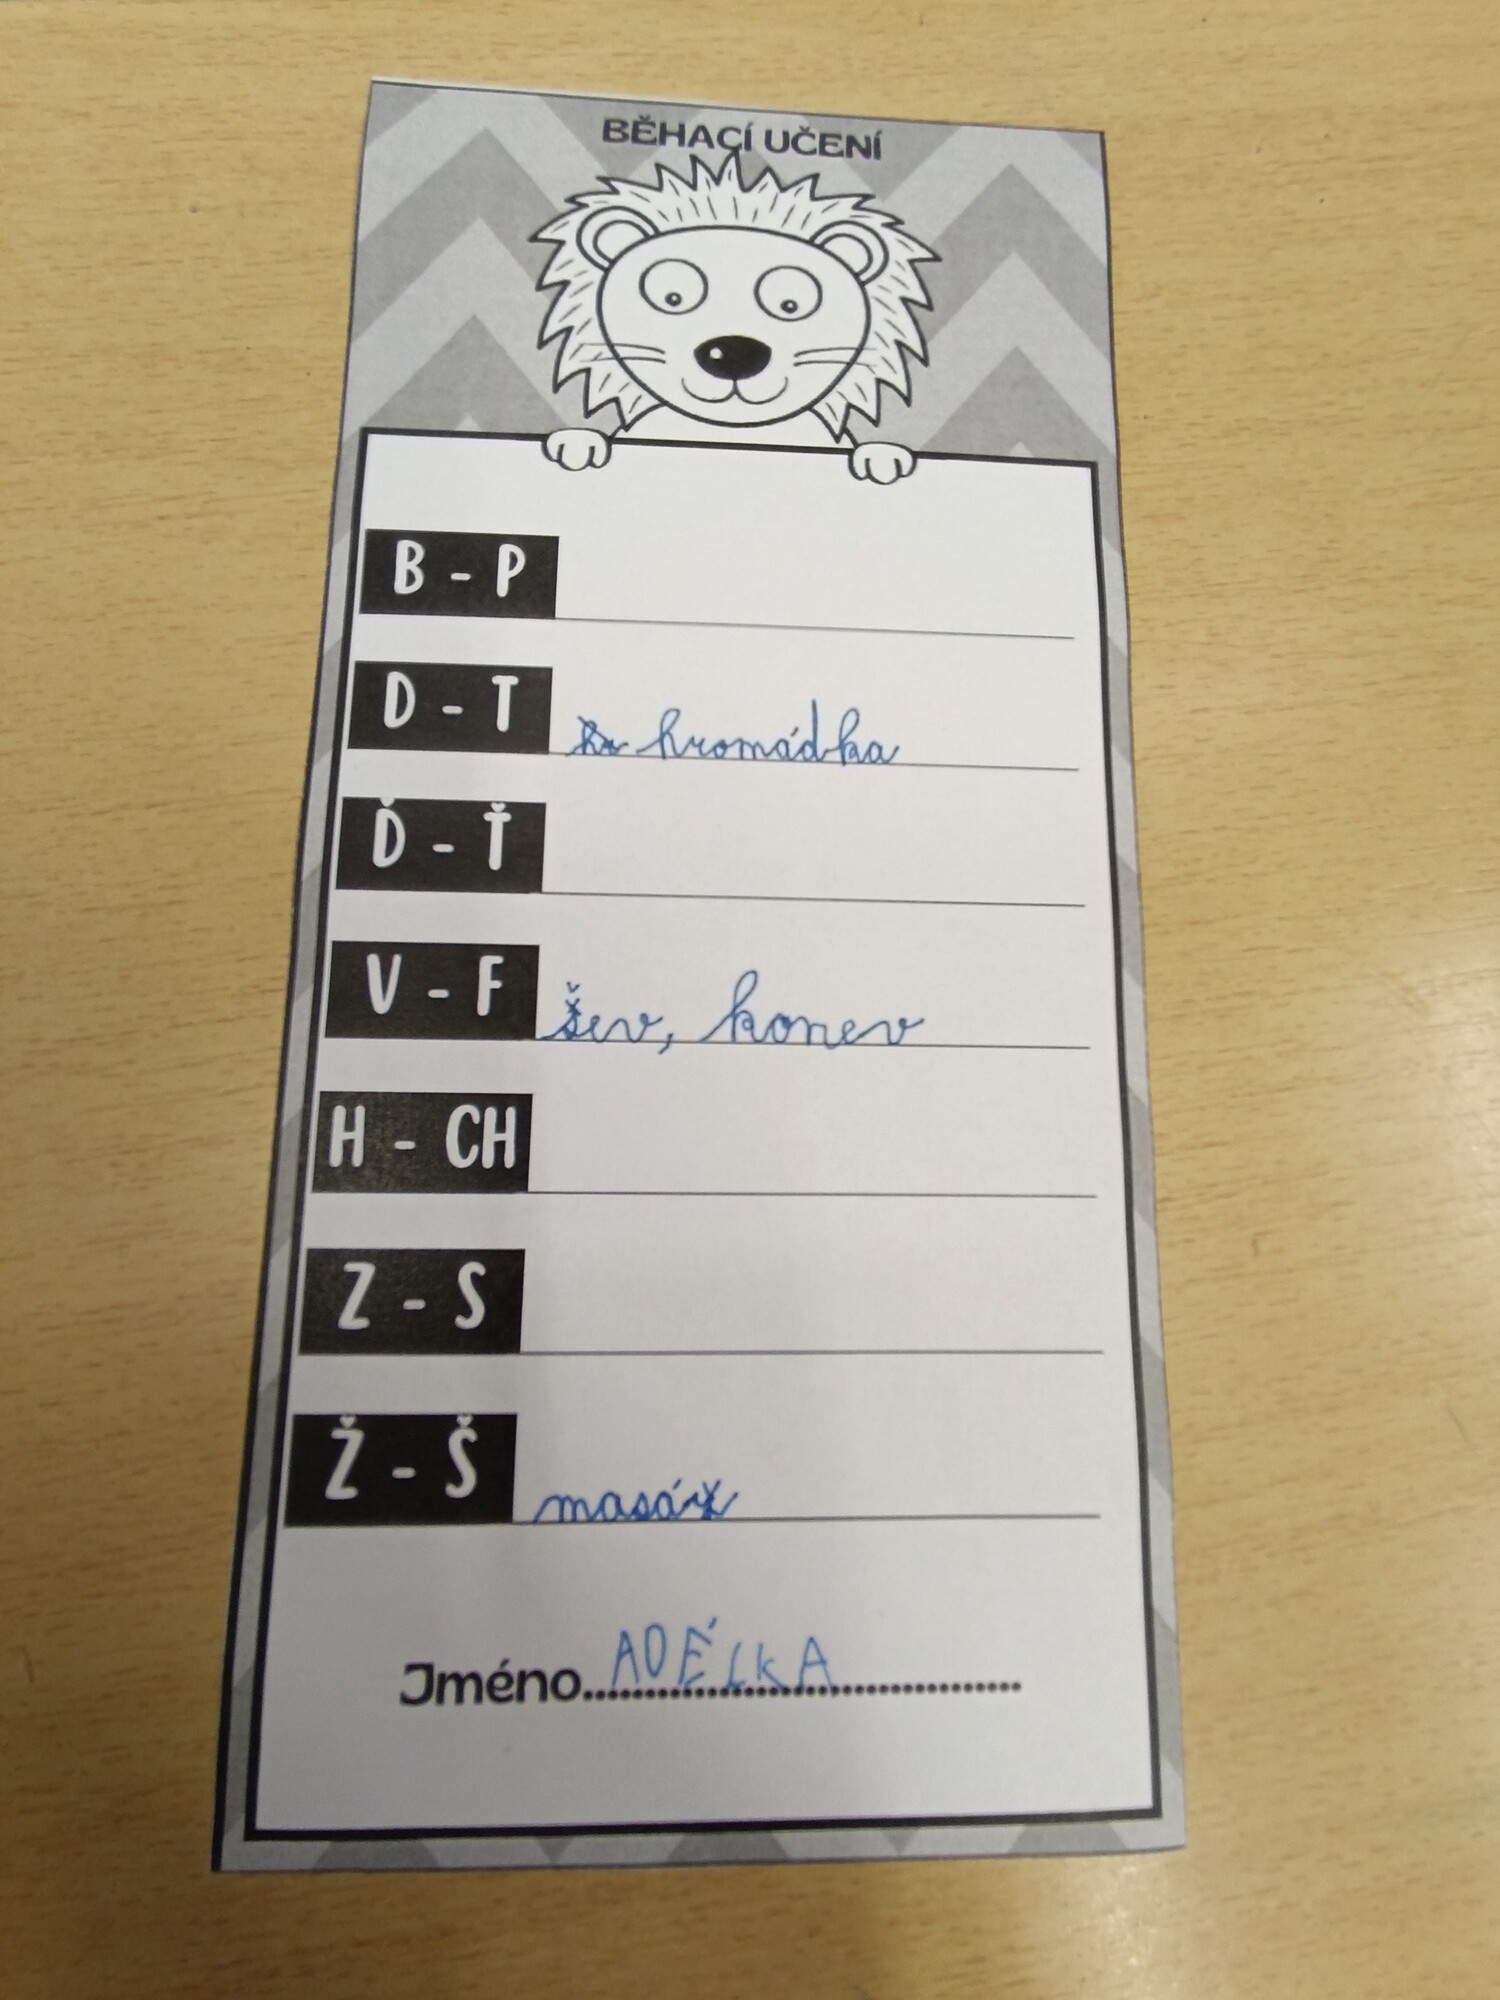 BĚHACÍ UČENÍ
B - P
D - T hromádka
Ď - Ť
V - F šev, konev
H - CH
Z - S
Ž - Š
Jméno ADÉLKA